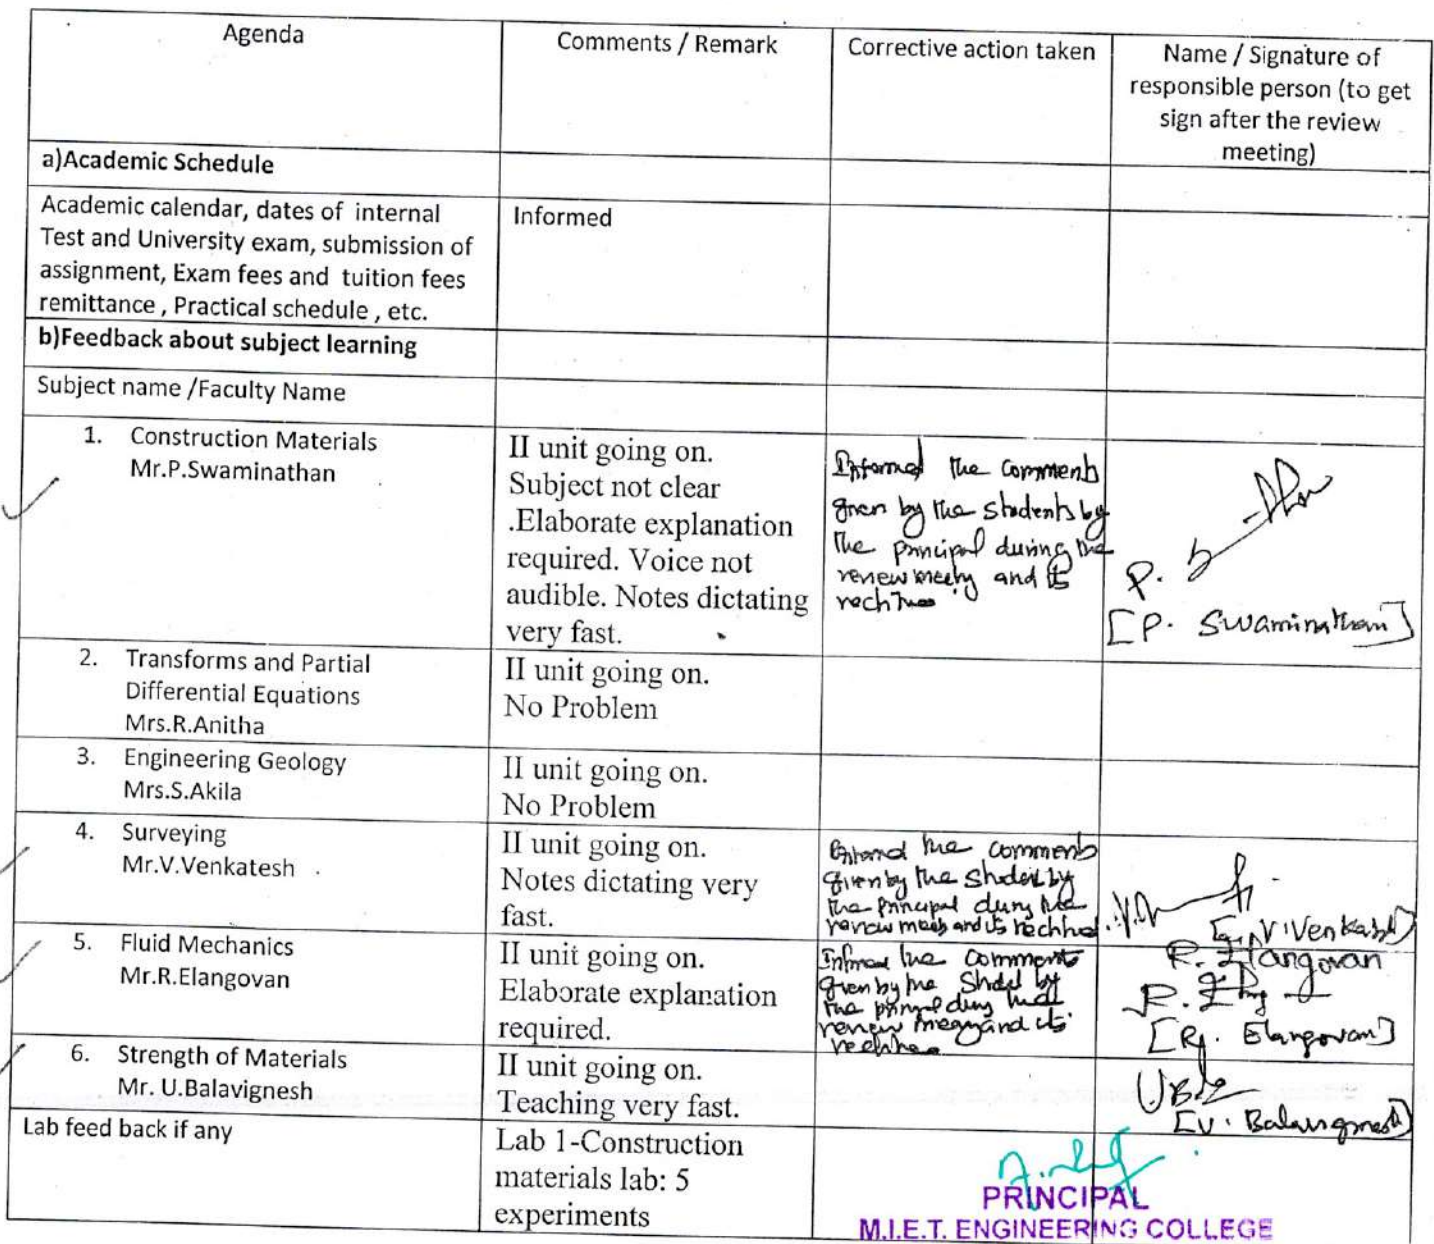 Agenda
Comments / Remark
Corrective action taken
Name / Signature of
responsible person (to get
sign after the review
meeting)
a)Academic Schedule
Academic calendar, dates of internal
Test and University exam, submission of
assignment, Exam fees and tuition fees
remittance , Practical schedule , etc.
Informed
b)Feedback about subject learning
Subject name /Faculty Name
1. Construction Materials
Mr.P.Swaminathan
II unit going on.
Subject not clear
.Elaborate explanation
required. Voice not
audible. Notes dictating
very fast.
Informed the comments
given by the students by
the principal during the
review meeting and its
P.
[P. Swaminathan]
2. Transforms and Partial
Differential Equations
Mrs.R.Anitha
II unit going on.
No Problem
3. Engineering Geology
Mrs.S.Akila
II unit going on.
No Problem
4. Surveying
Mr.V.Venkatesh
II unit going on.
Notes dictating very
fast.
the comments
given by the by
the principal the
and its
V.Venkatesh]
5. Fluid Mechanics
Mr.R.Elangovan
II unit going on.
Elaborate explanation
required.
the comments
given by the by
the
review and its
R. Elangovan
R.
Elangovan]
6. Strength of Materials
Mr. U.Balavignesh
II unit going on.
Teaching very fast.
[U. Balavignesh]
Lab feed back if any
Lab 1-Construction
materials lab: 5
experiments
PRINCIPAL
M.I.E.T. ENGINEERING COLLEGE